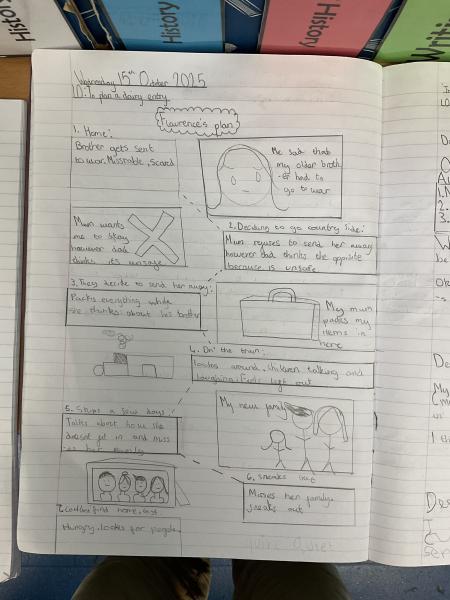 History
History
History
Writing
Wednesday 15th October 2025
LO: To plan a dairy entry
Flaurence's plan
1. Home:
Brother gets sent
to war. Missrable, scared
Me sad that
my older broth
-er had to
go to war
Mum wants
me to stay
however dad
thinks its unsafe
2. Deciding to go country side:
Mum refuses to send her away
however dad thinks the opposite
because is unsafe
3. They decide to send her away:
Packs everything while
she thinks about his brother
My mum
packs my
items in
here
4. On the train:
looks around, children talking and
laughing. Feels left out
5. Stays a few days:
Talks about how she
doesnt fit in and miss
-es her family
My new family
6. sneaks out
Misses her family,
sneaks out
7. Couldnt find home,
Hungry, looks for people